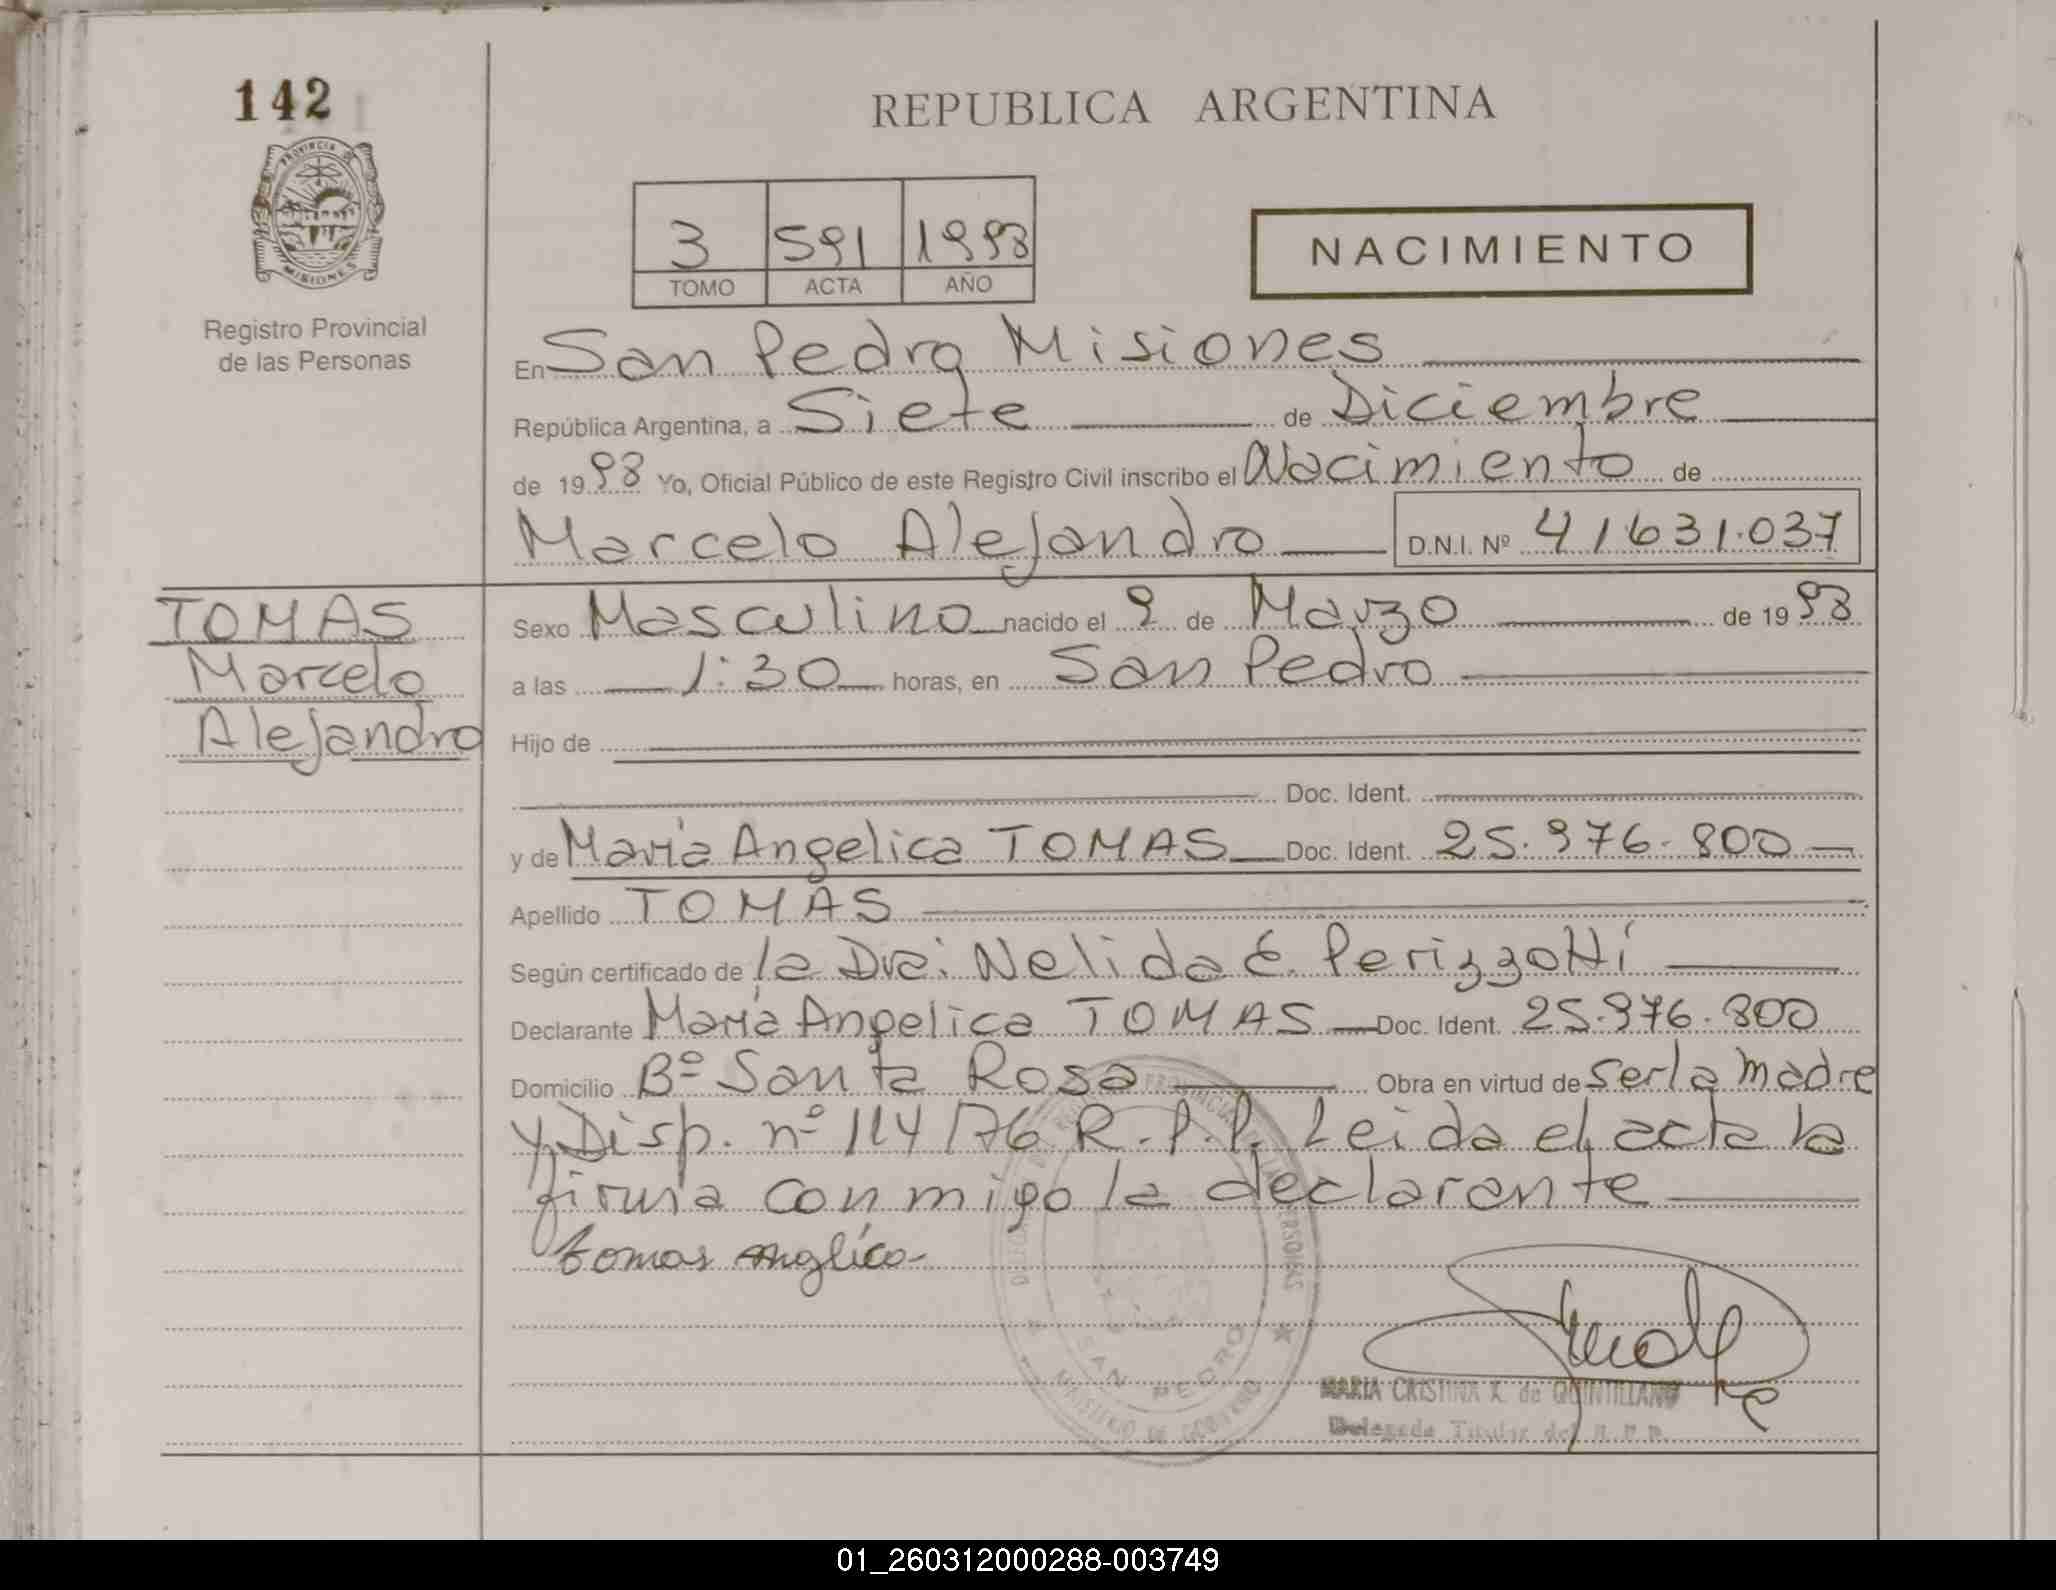 142
REPUBLICA ARGENTINA
PROVINCIA DE
MISIONES
Registro Provincial
de las Personas
3 591 1998
TOMO ACTA AÑO
NACIMIENTO
En San Pedro Misiones
República Argentina, a Siete de Diciembre
de 1998 Yo, Oficial Público de este Registro Civil inscribo el Nacimiento de
Marcelo Alejandro D.N.I. Nº 41631.037
TOMAS
Marcelo
Alejandro
Sexo Masculino nacido el 9 de Marzo de 1998
a las 1:30 horas, en San Pedro
Hijo de
Doc. Ident.
y de María Angelica TOMAS Doc. Ident. 25.976.800
Apellido TOMAS
Según certificado de la Dra: Nelida E. Perizzotti
Declarante María Angelica TOMAS Doc. Ident. 25.976.800
Domicilio Bº Santa Rosa Obra en virtud de ser la madre
y Disp. nº 114/76 R.P.P. Leida el acta la
firma conmigo la declarante
tomas anglica
SAN PEDRO
MINISTERIO DE GOBIERNO
MARIA CRISTINA K. de QUINTILLANO
Delegada Titular del R.P.P.
01_260312000288-003749